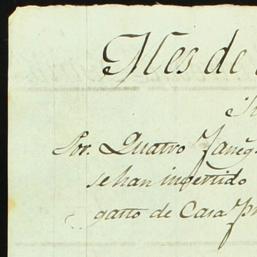 Mes de
Por. Quatro Faneg
se han ingertido
gatto de Casa